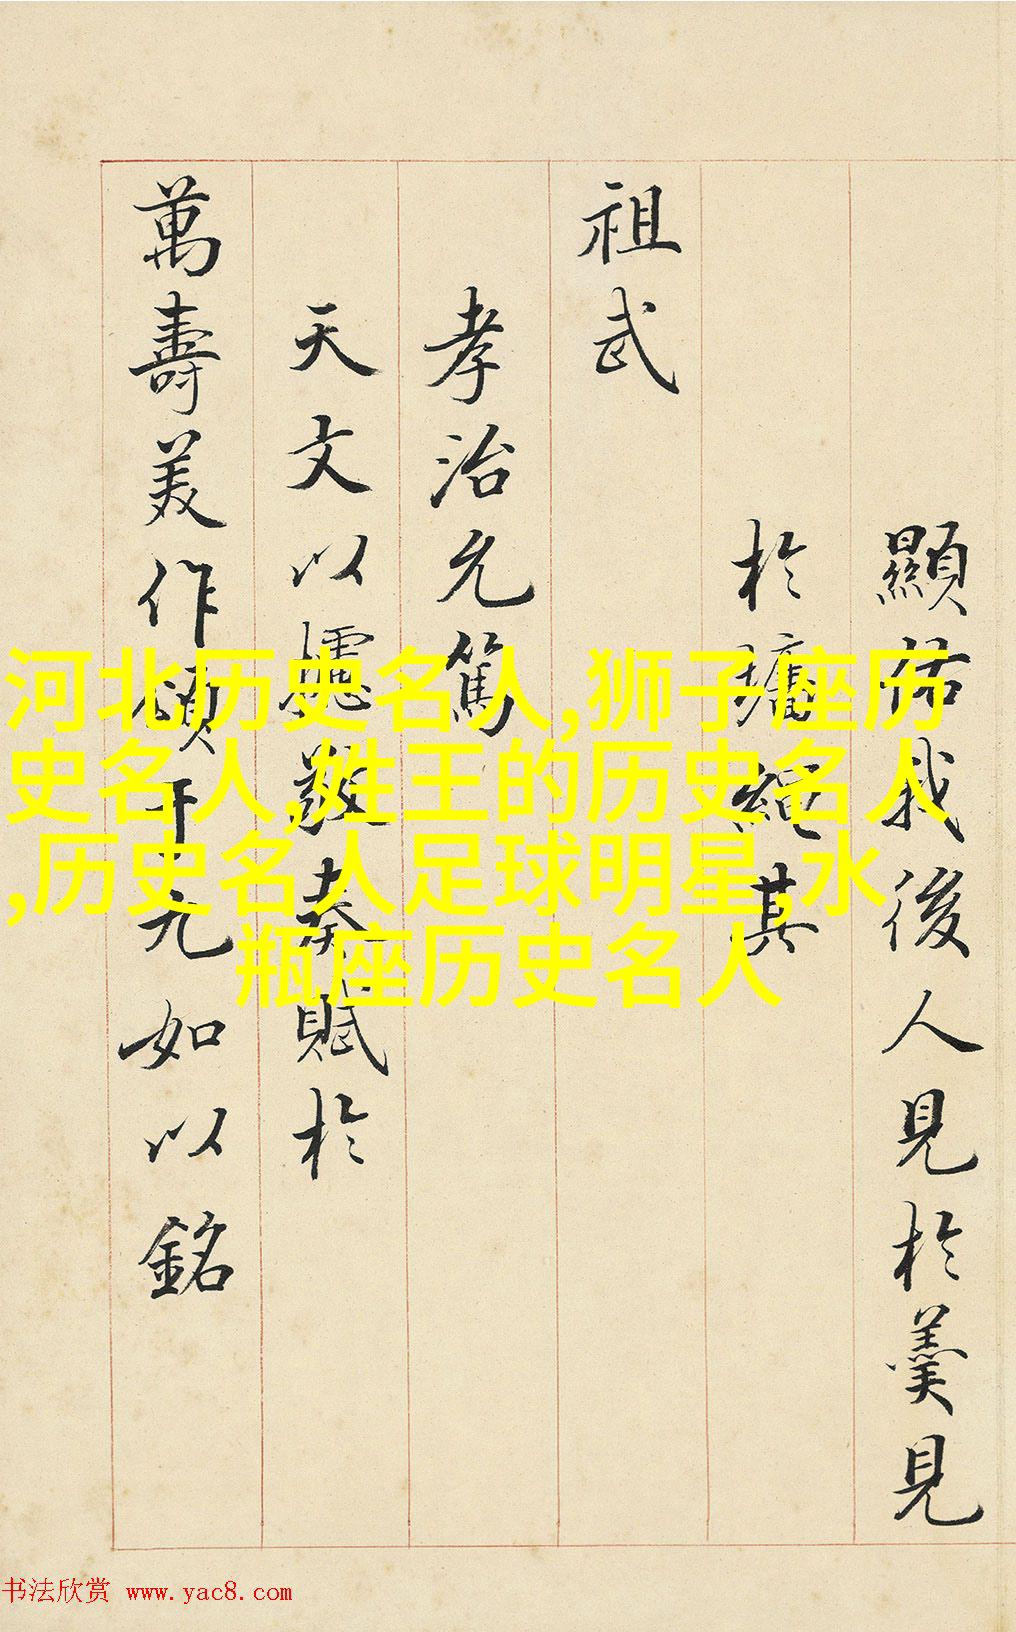 顯佑我後人見於羹見
於牆繩其
祖武
孝治允篤
天文以攄敬奏賦於
萬壽美作頌千元如以銘
河北历史名人,狮子座历
史名人,姓王的历史名人
,历史名人足球明星,水
瓶座历史名人
书法欣赏 www.yac8.com